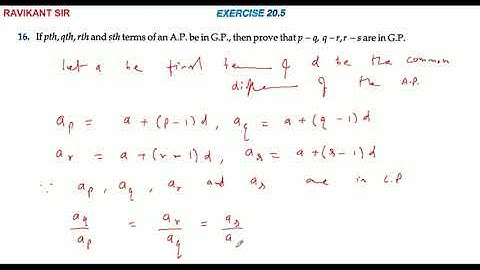 RAVIKANT SIR
EXERCISE 20.5
16. If pth, qth, rth and sth terms of an A.P. be in G.P., then prove that p – q, q – r, r – s are in G.P.
Let a be first term & d be the common
differ of the A.P.
aₚ = a + (p-1)d, a_q = a + (q-1)d
aᵣ = a + (r-1)d, aₛ = a + (s-1)d
∵ aₚ, a_q, aᵣ and aₛ are in G.P
a_q/aₚ = aᵣ/a_q = aₛ/a